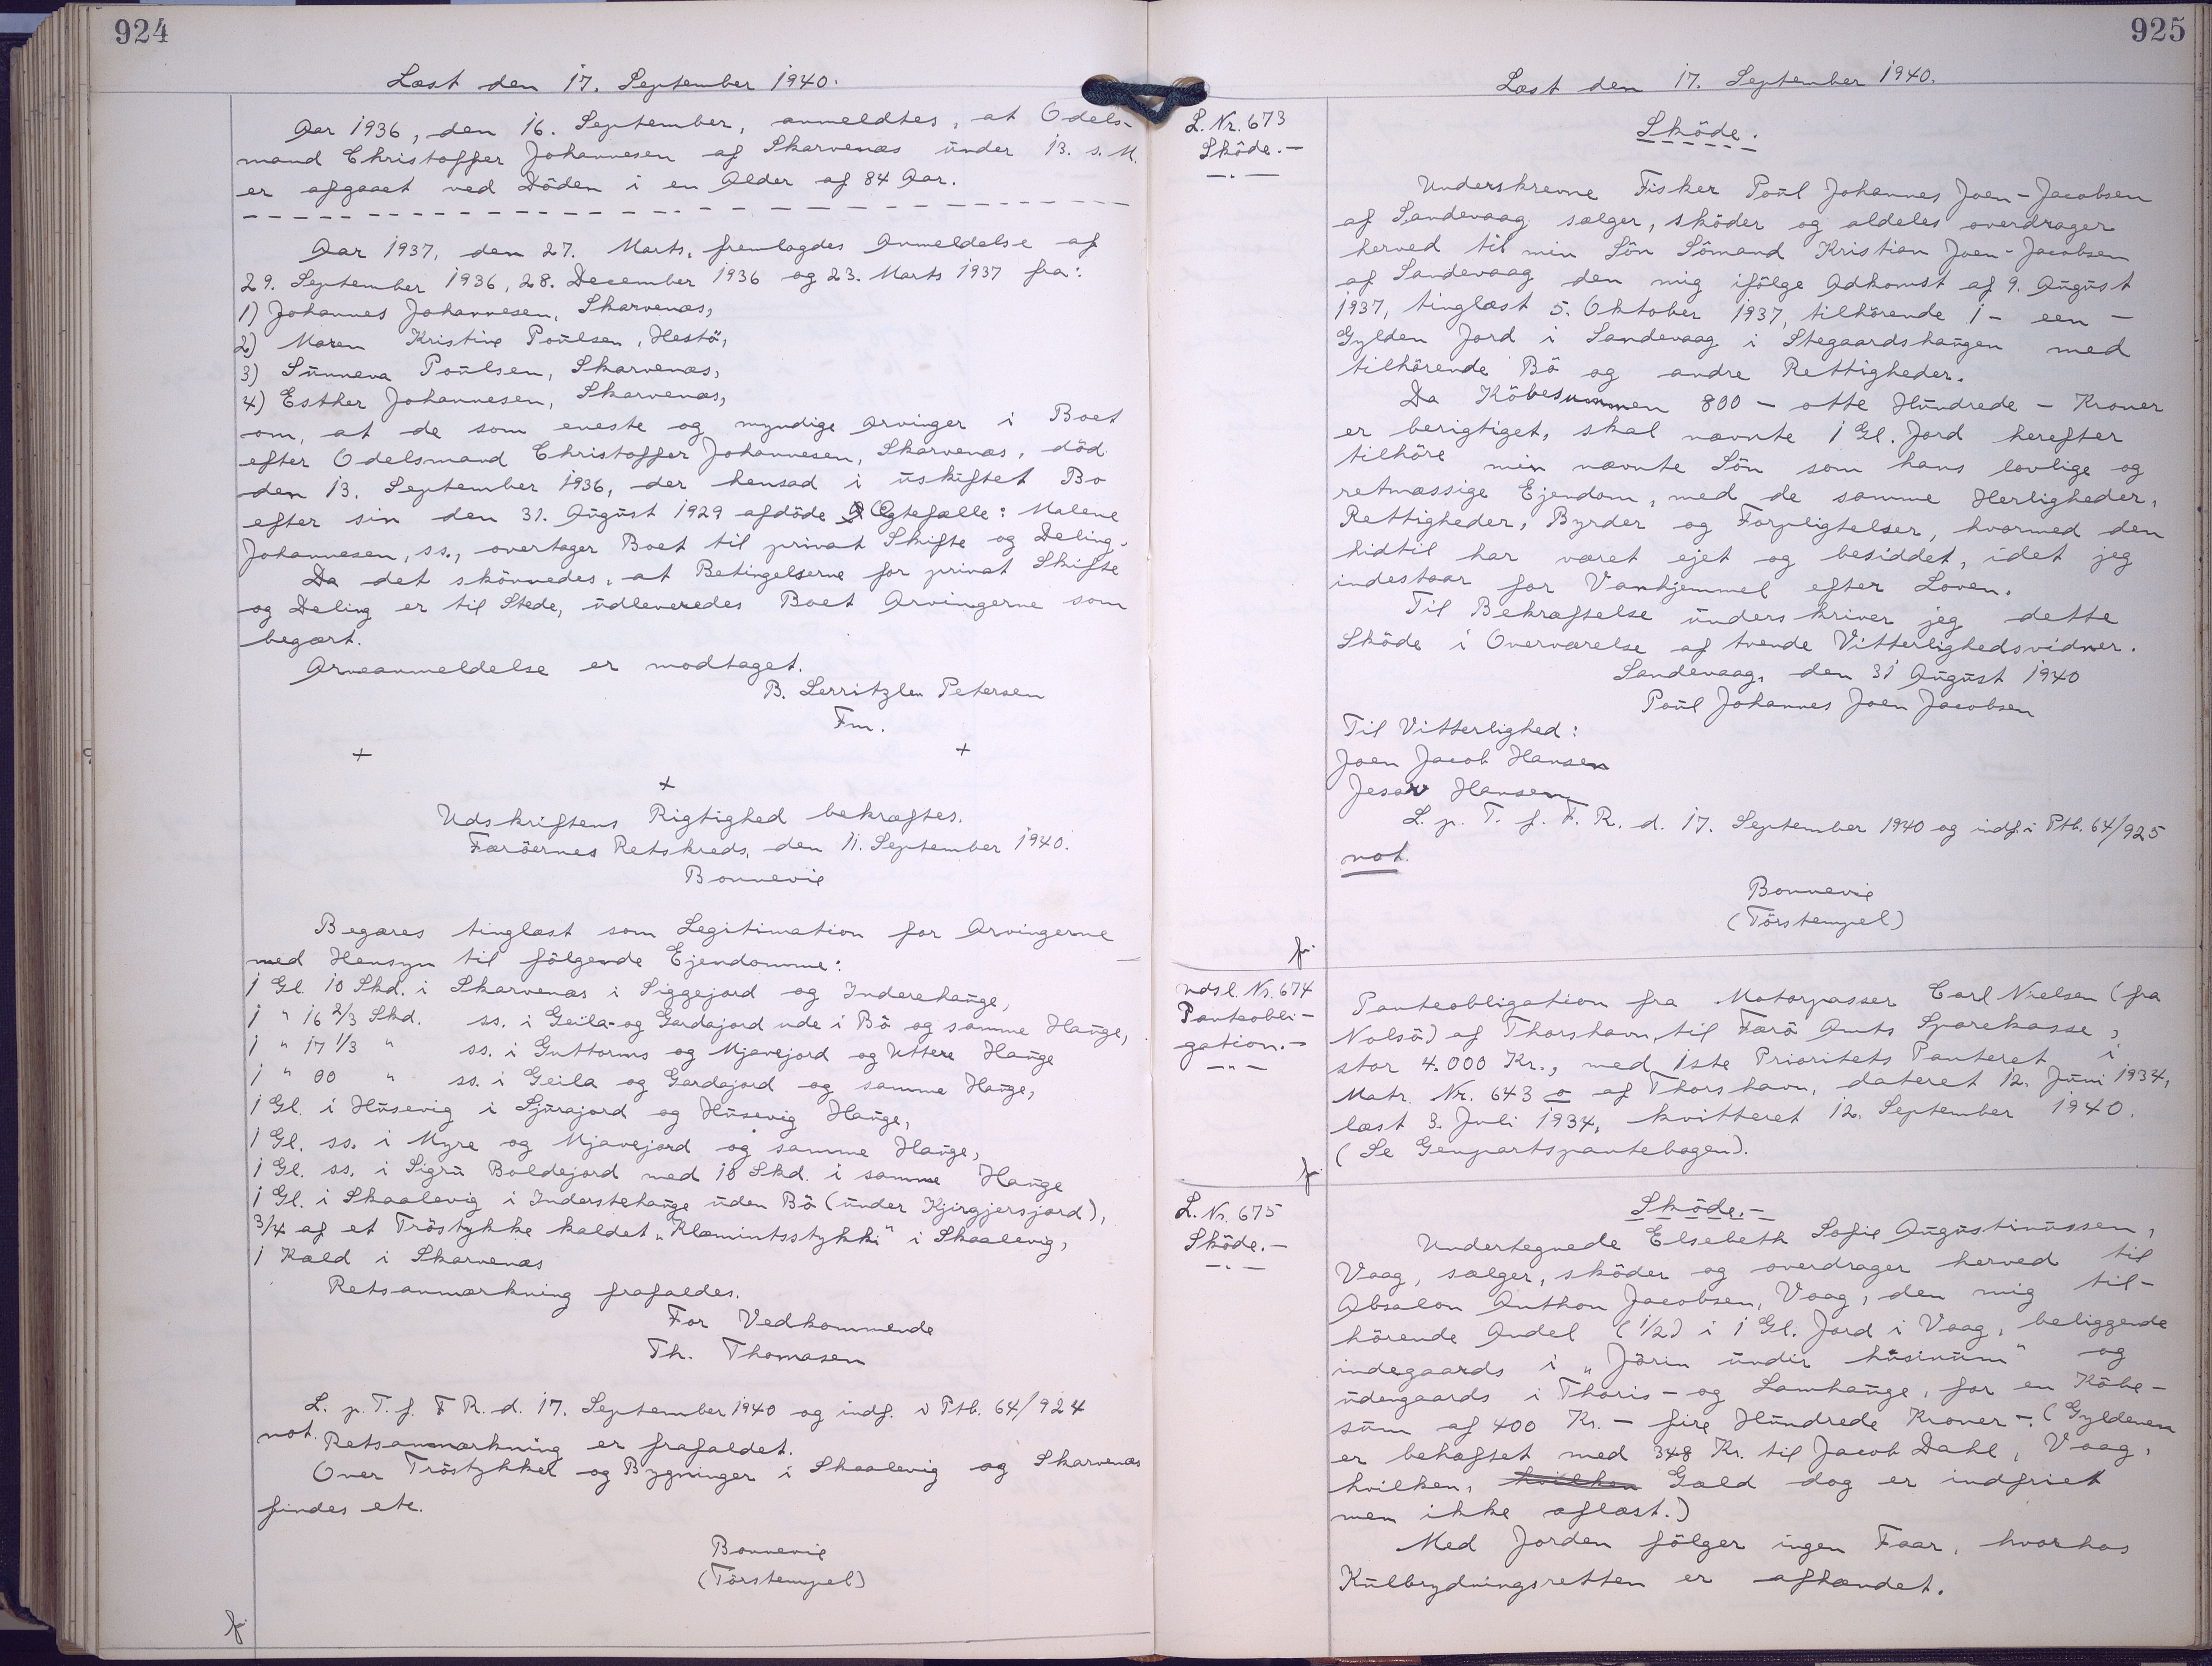 924
Læst den 17. September 1940.
Aar 1936, den 16. September, anmeldtes, at Odels-
mand Christoffer Johannesen af Skarvenæs under 13. s. M.
er afgaaet ved Döden i en Alder af 84 Aar.
Aar 1937, den 27. Marts, fremlagdes Anmeldelse af
29. September 1936, 28. December 1936 og 23. Marts 1937 fra:
1) Johannes Johannesen, Skarvenæs,
2) Maren Kristine Poulsen, Hestö,
3) Sunneva Poulsen, Skarvenæs,
4) Esther Johannesen, Skarvenæs,
om, at de som eneste og myndige Arvinger i Boet
efter Odelsmand Christoffer Johannesen, Skarvenæs, död
den 13. September 1936, der hensad i uskiftet Bo
efter sin den 31. August 1929 afdöde Ægtefælle: Malene
Johannesen, ss., overtager Boet til privat Skifte og Deling.
Da det skönnedes, at Betingelserne for privat Skifte
og Deling er til Stede, udleveredes Boet Arvingerne som
begært.
Arveanmeldelse er modtaget.
B. Lerritzlen Petersen
Fm.
+ +
+
Udskriftens Rigtighed bekræftes.
Færöernes Retskreds, den 11. September 1940.
Bonnevie
Begæres tinglæst som Legitimation for Arvingerne
med Hensyn til fölgende Ejendomme:
1 Gl. 10 Skd. i Skarvenæs i Siggejord og Inderehauge,
1 " 16 2/3 Skd. ss. i Geila- og Gardajord ude i Bö og samme Hauge,
1 " 17 1/3 " ss. i Guttorms og Mjavejord og Uttere Hauge
1 " 00 " ss. i Geila og Gardajord og samme Hauge,
1 Gl. i Husevig i Sjurajord og Husevig Hauge,
1 Gl. ss. i Myre og Mjavejord og samme Hauge,
1 Gl. ss. i Sigru Boldejord med 10 Skd. i samme Hauge
1 Gl. i Skaalevig i Inderstehauge uden Bö (under Kjirgjersjord),
3/4 af et Tröstykke kaldet "Klæmintsstykki" i Skaalevig,
1 Kald i Skarvenæs
Retsanmærkning frafaldes.
For Vedkommende
Th. Thomasen
L. p. T. f. F R. d. 17. September 1940 og indf. i Ptb. 64/924
not. Retsanmærkning er frafaldet.
Over Tröstykket og Bygninger i Skaalevig og Skarvenæs
findes etc.
Bonnevie
(Törstempel)
925
Læst den 17. September 1940.
L. Nr. 673
Sköde.-
Sköde.
Underskrevne Fisker Poul Johannes Joen-Jacobsen
af Sandevaag sælger, sköder og aldeles overdrager
herved til min Sön Sömand Kristian Joen-Jacobsen
af Sandevaag den mig ifölge Adkomst af 9. August
1937, tinglæst 5. Oktober 1937, tilhörende 1 - een -
Gylden Jord i Sandevaag i Stegaardshaugen med
tilhörende Bö og andre Rettigheder.
Da Köbesummen 800 - otte Hundrede - Kroner
er berigtiget, skal nævnte 1 Gl. Jord herefter
tilhöre min nævnte Sön som hans lovlige og
retmæssige Ejendom, med de samme Herligheder,
Rettigheder, Byrder og Forpligtelser, hvormed den
hidtil har været ejet og besiddet, idet jeg
indestaar for Vanhjemmel efter Loven.
Til Bekræftelse underskriver jeg dette
Sköde i Overværelse af tvende Vitterlighedsvidner.
Sandevaag, den 31 August 1940
Poul Johannes Joen Jacobsen
Til Vitterlighed:
Joen Jacob Hansen
Jesav Hansen
L. p. T. f. F. R. d. 17. September 1940 og indf. i Ptb. 64/925
not.
Bonnevie
(Törstempel)
udsl. Nr. 674
Panteobli-
gation.-
Panteobligation fra Motorpasser Carl Nielsen (fra
Nolsö) af Thorshavn, til Færö Amts Sparekasse,
stor 4.000 Kr., med 1ste Prioritets Panteret i
Matr. Nr. 643 o af Thorshavn, dateret 12. Juni 1934,
læst 3. Juli 1934, kvitteret 12. September 1940.
(Se Genpartspantebogen).
L. Nr. 675
Sköde.-
Sköde.-
Undertegnede Elsebeth Sofie Augustinussen,
Vaag, sælger, sköder og overdrager herved til
Absalon Anthon Jacobsen, Vaag, den mig til-
hörende Andel (1/2) i 1 Gl. Jord i Vaag, beliggende
indegaards i "Jörin undir húsinum" og
udengaards i Thoris- og Lamhauge, for en Köbe-
sum af 400 Kr. - fire Hundrede Kroner -. (Gyldenen
er behæftet med 348 Kr. til Jacob Dahl, Vaag,
hvilken, hvilken Gæld dog er indfriet
men ikke aflæst.)
Med Jorden fölger ingen Faar, hvorhos
Kulbrydningsretten er afhændet.